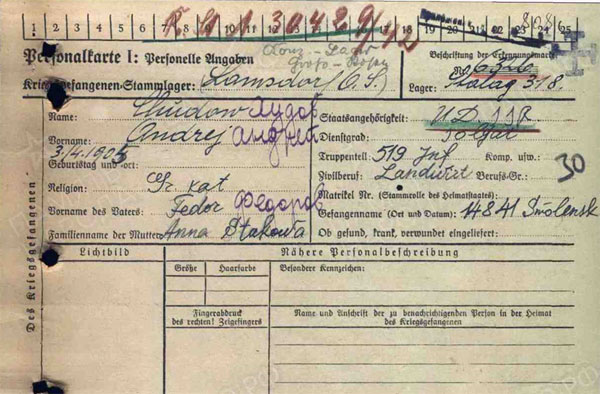 1 2 3 4 5 6 7 8 9 10 11 12 13 14 15 16 17 18 19 20 21 22 23 24 25
Personalkarte I: Personelle Angaben
Beschriftung der Erkennungsmarke
Nr.
Kriegsgefangenen-Stammlager: Lamsdorf O.S.
Lager: Stalag 318.
Des Kriegsgefangenen
Name: Chudow Худов
Staatsangehörigkeit: U.D.SSR
Vorname: Andrej Андрей
Dienstgrad: Soldat
Geburtstag und -ort: 3.4.1905
Truppenteil: 519 Inf Komp. usw.:
Religion: Gr kat
Zivilberuf: Landwirt Berufs-Gr.: 30
Matrikel Nr. (Stammrolle des Heimatstaates):
Vorname des Vaters: Fedor
Gefangennahme (Ort und Datum): Smolensk
Familienname der Mutter: Anna
Ob gesund, krank, verwundet eingeliefert:
Lichtbild
Nähere Personalbeschreibung
Größe Haarfarbe Besondere Kennzeichen:
Fingerabdruck
des rechten! Zeigefingers
Name und Anschrift der zu benachrichtigenden Person in der Heimat
des Kriegsgefangenen